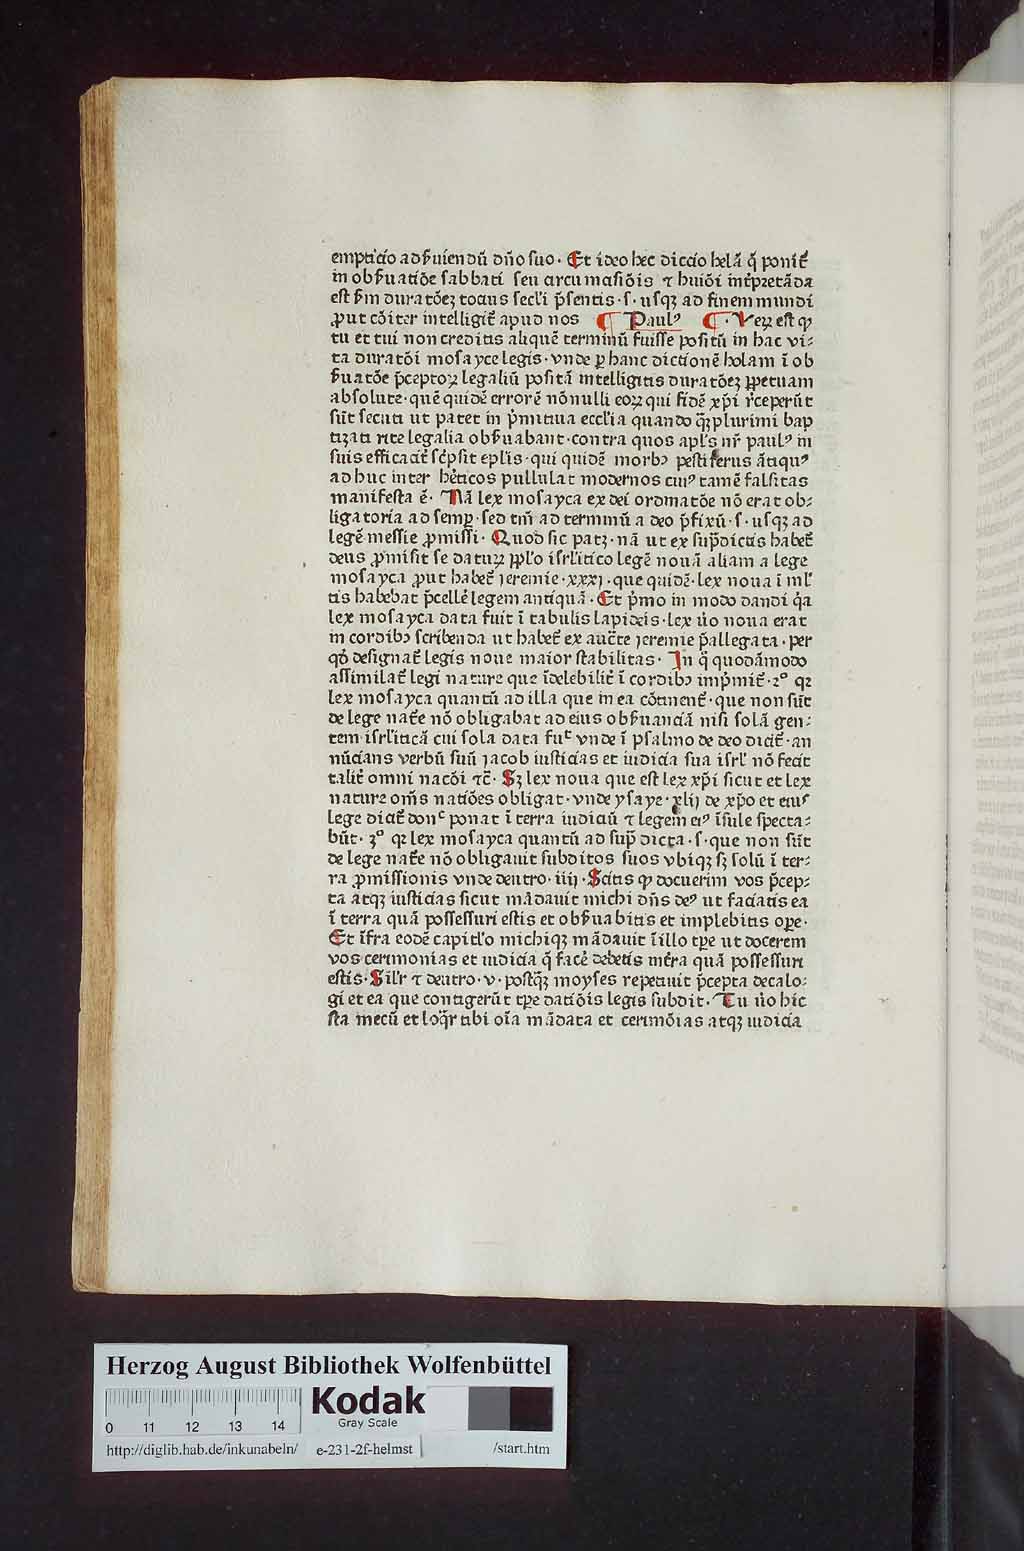 empticio ad ẜuiendū dn̄o suo · Et ideo hec diccio helā q̄ ponit᷑
in obẜuatiōe sabbati seu arcumcisiōis ⁊ huiōi int̉pretāda
est ẜm duratōeꝫ tocius secl̓i p̄sentis · s · usqꝫ ad finem mundi
ꝓut cōiter intelligit᷑ apud nos ¶ Paulꝰ ¶ · Veꝝ est ꝙ
tu et tui non creditis aliquē terminū fuisse positū in hac vi⸗
ta duratōi mosayce legis · vnde ꝑ hanc dictionē holam ī ob
ẜuatōe p̄ceptoꝝ legaliū positā intelligitis duratōeꝫ ꝑpetuam
absolute · quē quidē errorē nōnulli eoꝝ qui fidē xp̄i r̓ceperūt
sūt secuti ut patet in p̓mitiua eccl̓ia quando qꝫ̄plurimi bap
tizati rite legalia obẜuabant · contra quos apl̓s nr̄ paulꝰ in
suis efficacit̉ sc̓psit epl̓is · qui quidē morbꝰ pestiferus ātiquꝰ
adhuc inter he̓ticos pullulat modernos cuiꝰ tamē falsitas
manifesta ē · Nā lex mosayca ex dei ordinatōe nō erat ob⸗
ligatoria ad semꝑ · sed tm̄ ad terminū a deo p̄fixū · s · usqꝫ ad
legē messie ꝓmissi · Quod sic patꝫ · nā ut ex sup̄dictis habet᷑
deus ꝓmisit se datuꝝ ppl̓o isrl̓itico legē nouā aliam a lege
mosayca ꝓut habet᷑ ȷeremie · xxxȷ · que quidē · lex noua ī ml̓
tis habebat p̄celle̓ legem antiquā · Et p̓mo in modo dandi q̓a
lex mosayca data fuit ī tabulis lapideis · lex u̓o noua erat
in cordibꝰ scribenda ut habet᷑ ex auct̄te ȷeremie p̄allegata · per
qđ designat᷑ legis noue maior stabilitas · In q̄ quodāmodo
assimilat᷑ legi nature que īdelebilit̉ ī cordibꝰ imp̓mit᷑ · 2º qꝛ
lex mosayca quantū ad illa que in ea cōtinent᷑ · que non sūt
de lege nat᷑e nō obligabat ad eius obẜuanciā nisi solā gen⸗
tem isrl̓iticā cui sola data fuᶜ vnde ī psalmo de deo dicit᷑ · an
nūcians verbū suū ȷacob iusticias et iudicia sua isrl̓ nō fecit
talit̉ omni nacōi ⁊c̄ · Sꝫ lex noua que est lex xp̄i sicut et lex
nature om̄s natiōes obligat · vnde ysaye · xlij de xp̄o et eiuˢ
lege dicit᷑ donᶜ ponat ī terra iudiciū ⁊ legem eiꝰ īsule specta⸗
būt · 3º qꝛ lex mosayca quantū ad sup̄ dicta · s · que non sūt
de lege nat᷑e nō obligauit subditos suos vbiqꝫ sꝫ solū ī ter⸗
ra ꝓmissionis vnde deutro · iiij · Scitis ꝙ docuerim vos p̄cep⸗
ta atqꝫ iusticias sicut mādauit michi dn̄s deꝰ ut faciatis ea
ī terra quā possessuri estis et obẜuabitis et implebitis oꝑe ·
Et īfra eodē capitl̓o michiqꝫ mādauit ī illo tꝑe ut docerem
vos cerimonias et iudicia q̄ face̓ debetis in t̓ra quā possessuri
estis · Sil̓r ⁊ deutro · v · postqꝫ̄ moyses repetiuit p̄cepta decalo⸗
gi et ea que contigerūt tꝑe datiōis legis subdit · Tu u̓o hic
sta mecū et loq̄r tibi oīa mādata et cerimōias atqꝫ iudicia
Herzog August Bibliothek Wolfenbüttel
0 11 12 13 14
Kodak
Gray Scale
http://diglib.hab.de/inkunabeln/ e-231-2f-helmst /start.htm